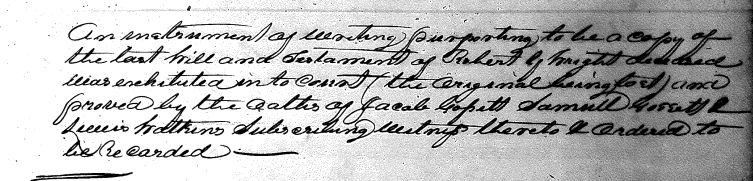 An instrument of writing purporting to be a copy of
the last Will and Testament of Robert G Wright deceased
was exhibited in to Court (the original being lost) and
proved by the Oaths of Jacob Gossett Samuel Gossett &
Lewis Watkins Subscribing Witness thereto & Ordered to
be Recorded